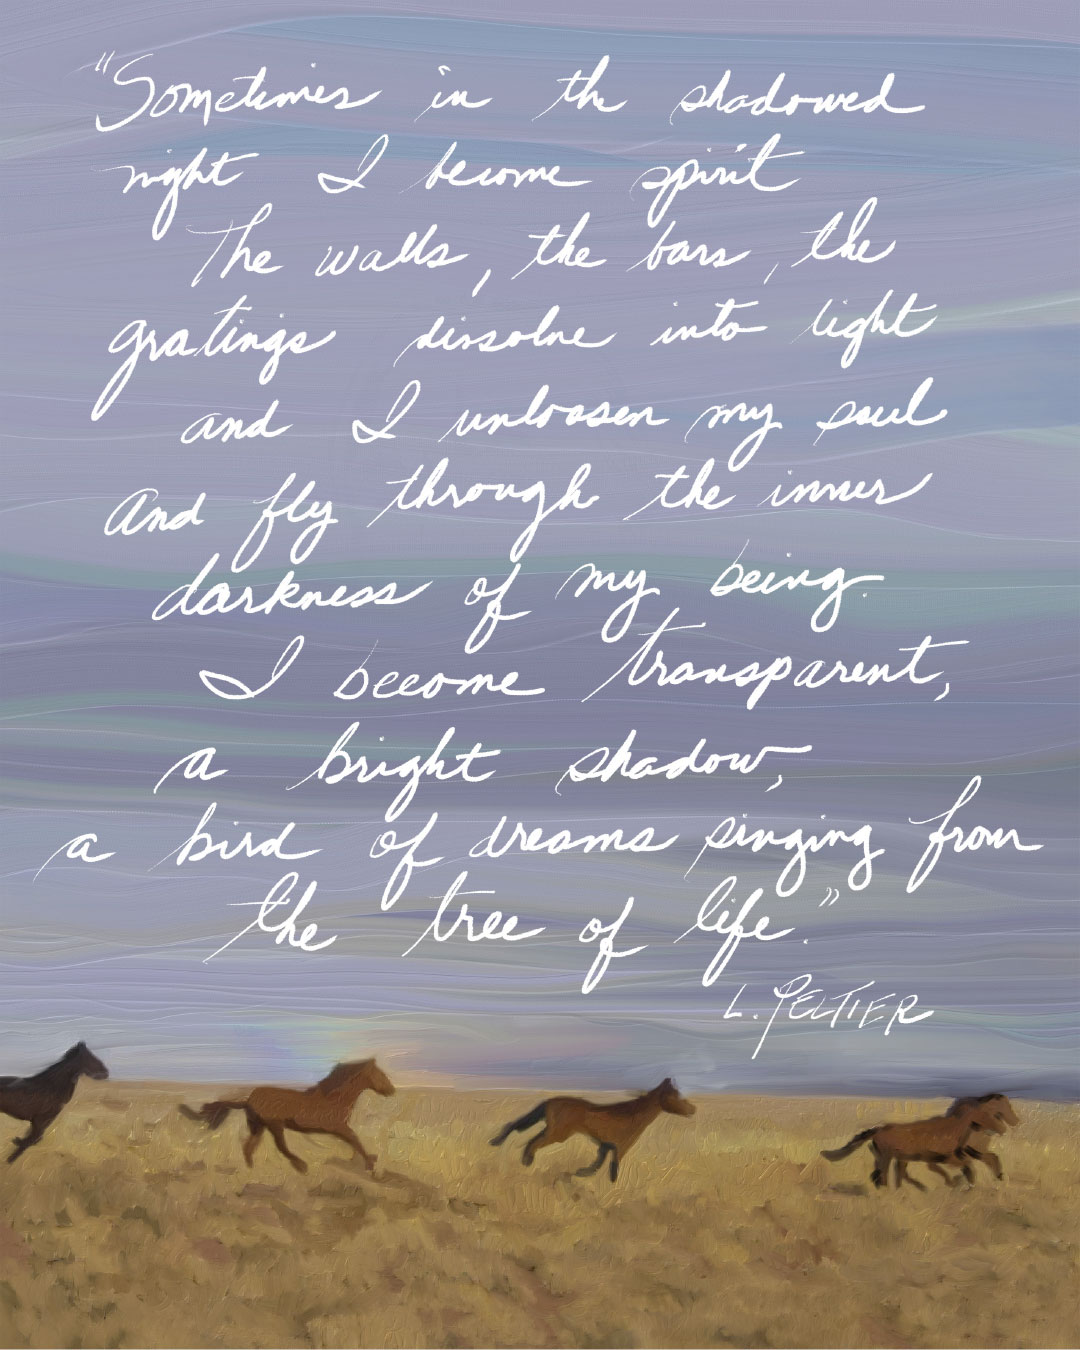 "Sometimes in the shadowed
night I become spirit
The walls, the bars, the
gratings dissolve into light
and I unloosen my soul
And fly through the inner
darkness of my being.
I become transparent,
a bright shadow,
a bird of dreams singing from
the tree of life."
L. PELTIER